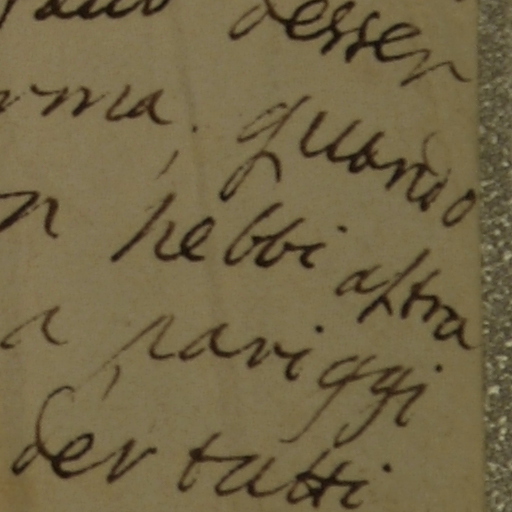 desser
rma, quando
n hebbi altra
a pariggi
der tutti